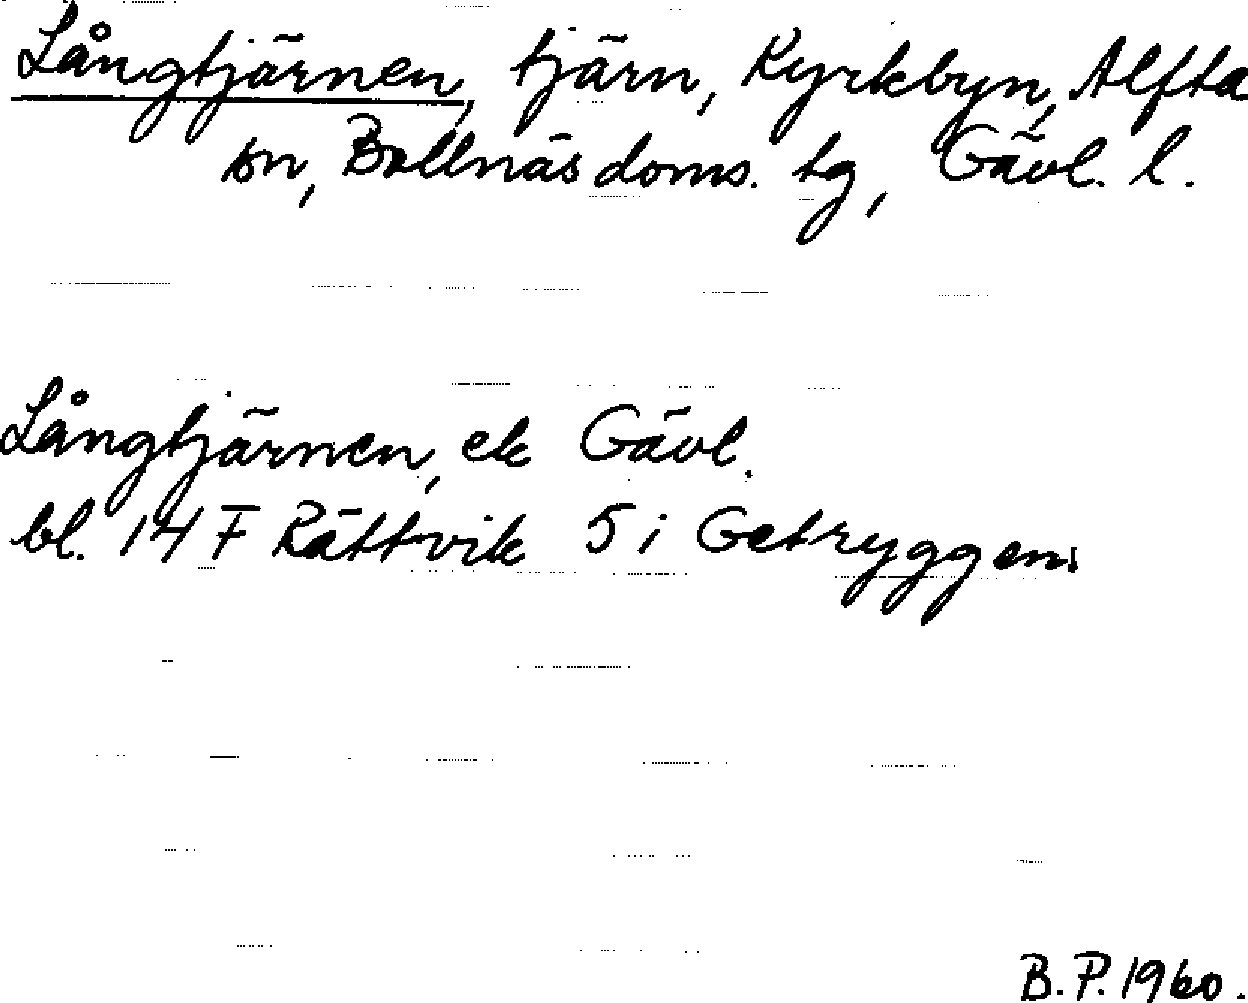 Långtjärnen, tjärn, Kyrkbyn, Alfta
sn, Bollnäs doms. tg, Gävl. l.
Långtjärnen, ek Gävl.
bl. 14 F Rättvik 5 i Getryggen.
B. P. 1960.